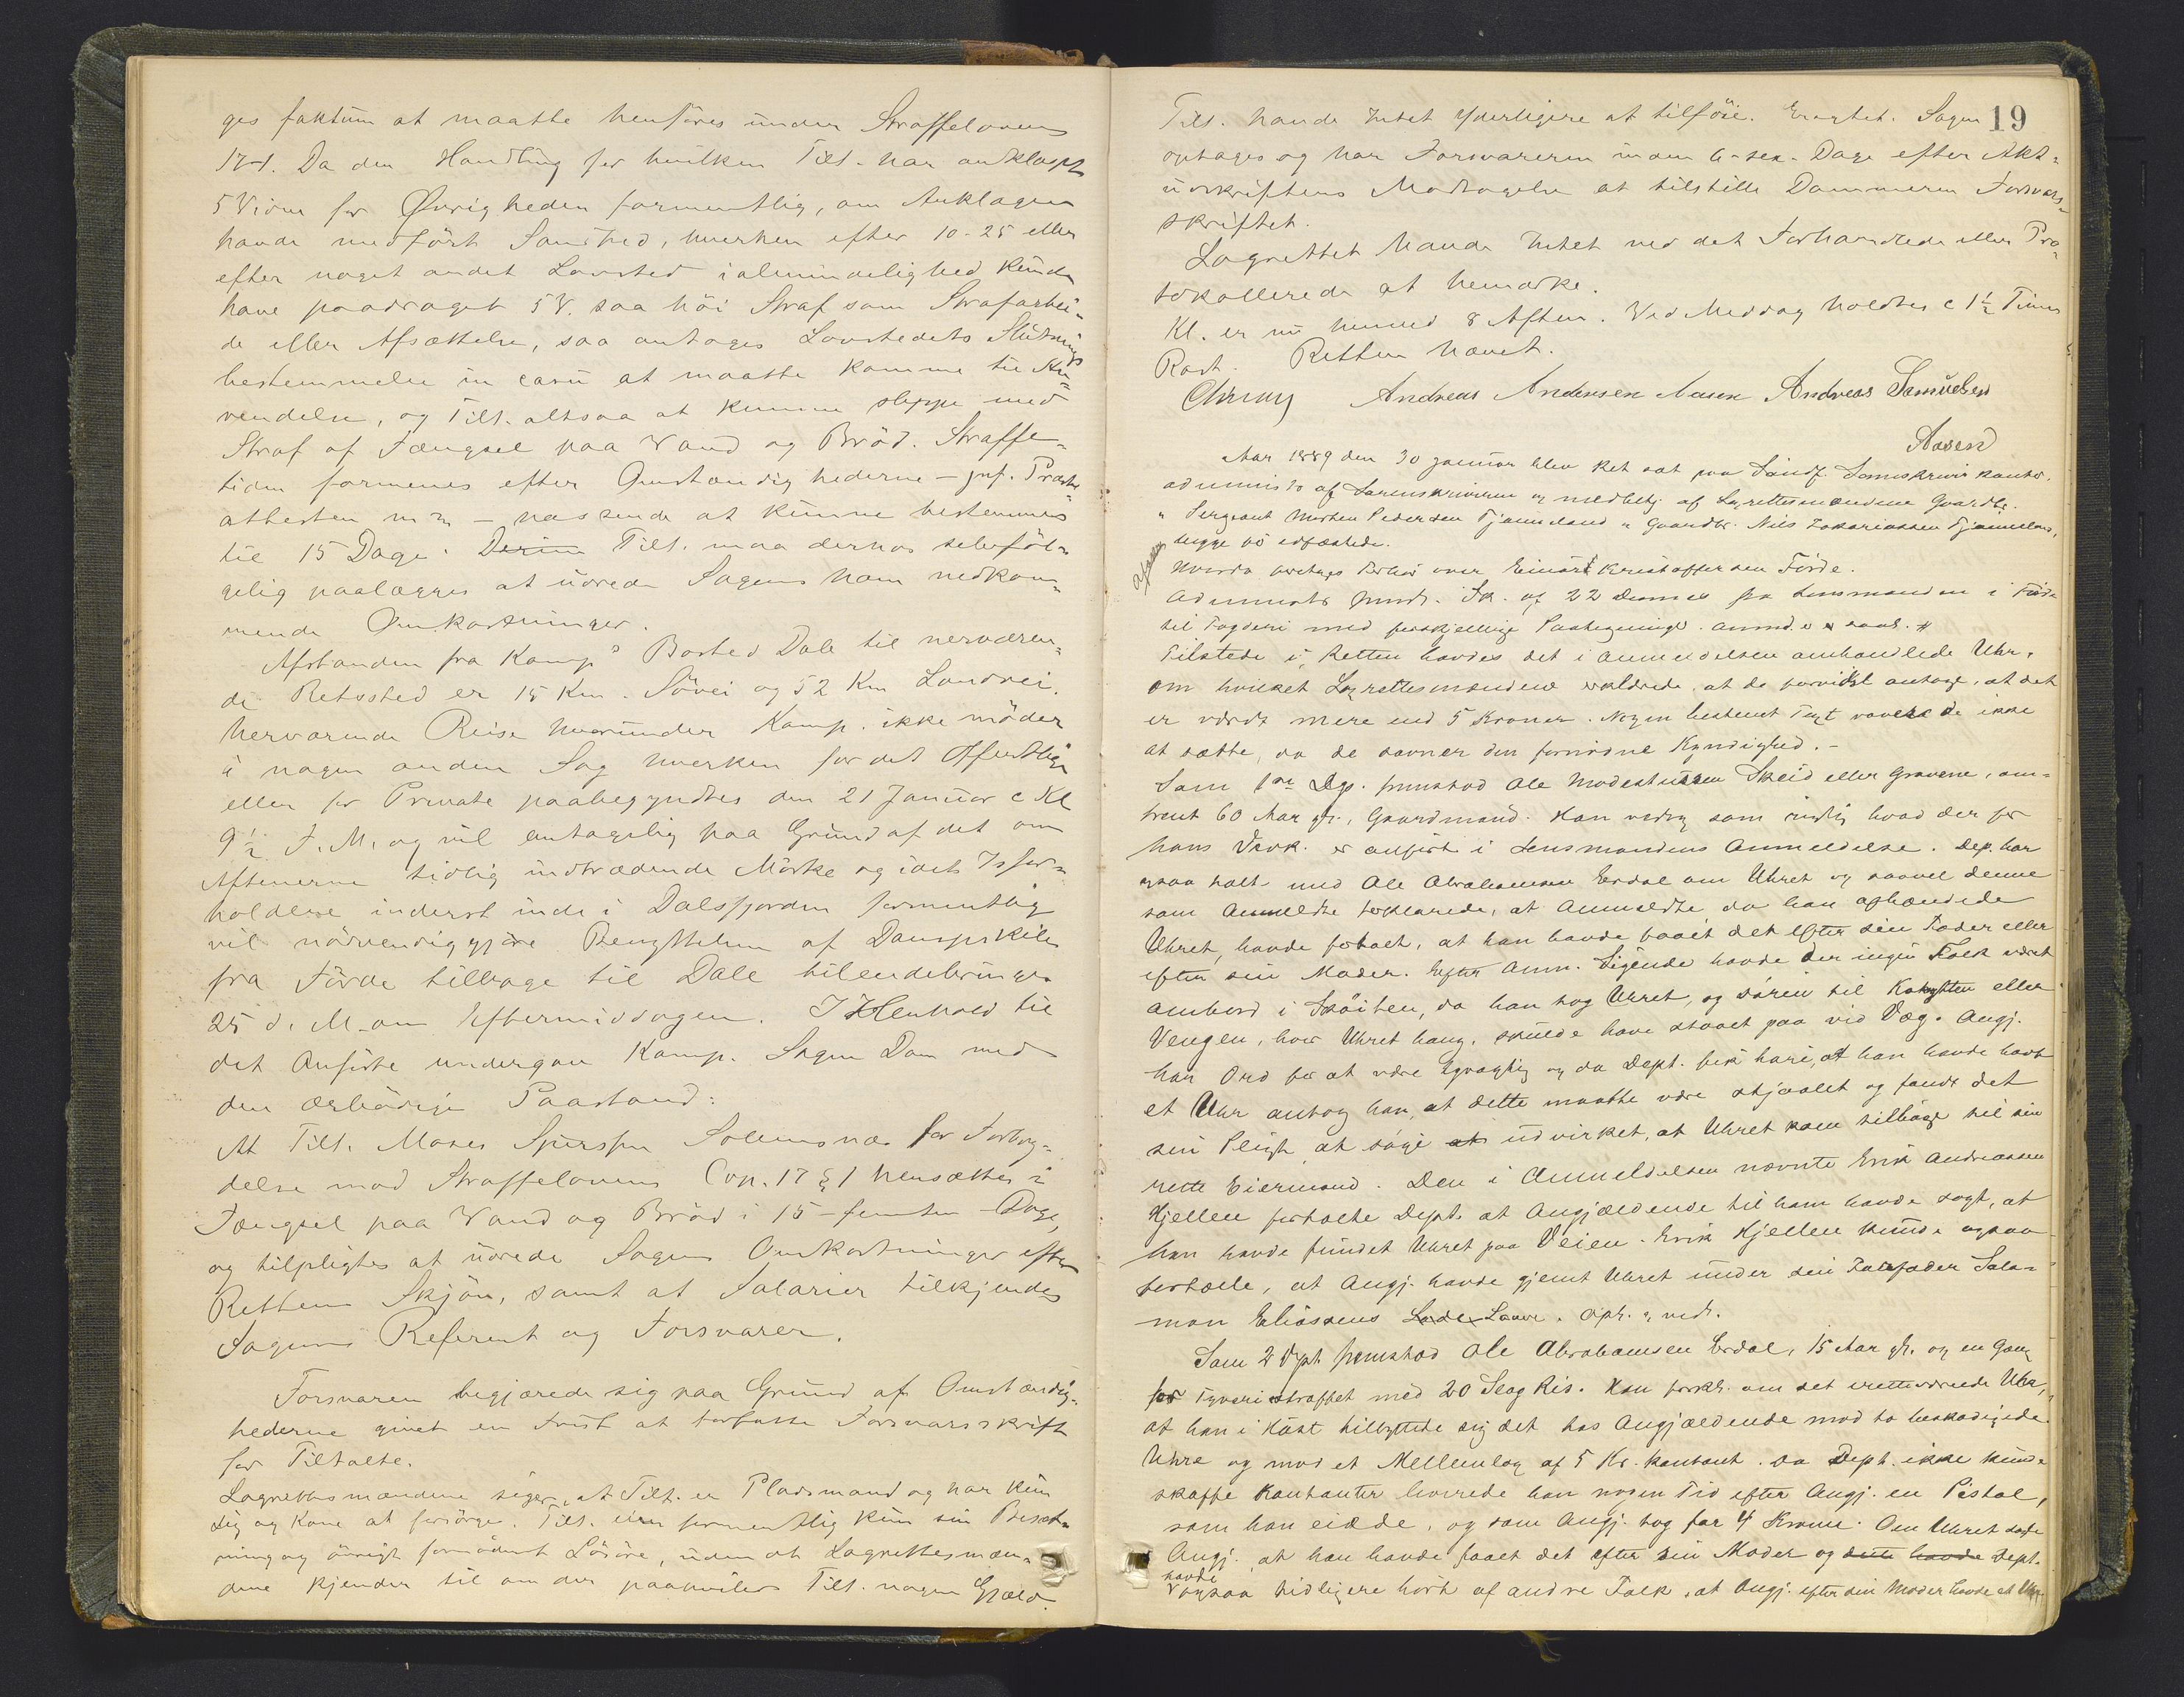 ges faktum at maatte henføres under Straffelovens
17-1. Da den Handling for hvilken Tilt. har anklaget
5 Vidne for Øvrigheden formentlig, om Anklagen
havde medført Sandhed, hverken efter 10-25 eller
efter noget andet Lovsted i alminelighed kunde
have paadraget 5 V. saa høi Straf som Strafarbei-
de eller Afsættelse, saa antages Lovstedets Slutnings
bestemmelse in casu at maatte komme til An-
vendelse, og Tilt. altsaa at kunne slippe med
Straf af Fængsel paa Vand og Brød. Straffe-
tiden formenes efter Omstændighederne – jvf. Præste-
attesten m m – passende at kunne bestemmes
til 15 Dage. Derim Tilt. maa derhos selvføl-
gelig paalægges at udrede Sagens ham vedkom-
mende Omkostninger.
Afstanden fra Kamp's Bosted Dale til nærværen-
de Retssted er 15 Km. Søvei og 52 Km Landvei.
Nærværende Reise hvorunder Kamp. ikke møder
i nogen anden Sag hverken for det Offentlige
eller for Private paabegyndtes den 21 Januar c Kl
9 1/2 F. M. og vil antagelig paa Grund af det om
Aftenerne tidlig indtrædende Mørke og idet Isfor-
holdene inderst inde i Dalsfjorden formentlig
vil nødvendiggjøre Benyttelsen af Dampskibe
fra Førde tilbage til Dale tilendebringes
25 d. M. om Eftermiddagen. I Henhold til
det Anførte undergav Kamp. Sagen Dom med
den ærbødige Paastand:
At Tilt. Moses Solemsnæs for Forbry-
delse mod Straffelovens Cap. 17 § 1 hensættes i
Fængsel paa Vand og Brød i 15 – femten – Dage,
og tilpligtes at udrede Sagens Omkostninger efter
Rettens Skjøn, samt at Salarier tilkjendes
Sagens Referent og Forsvarer.
Forsvaren begjærede sig paa Grund af Omstændig-
hederne givet en Frist at forfatte Forsvarsskrift
for Tiltalte.
Lagrettesmændene siger, at Tilt. er Pladsmand og har kun
sig og Kone at forsørge. Tilt. eier formentlig kun sin Besæt-
ning og øvrigt fornødent Løsøre, uden at Lagrettesmæn-
dene kjender til om der paahviler Tilt. nogen Gjæld.
19
Tilt. havde Intet yderligere at tilføie. Eragtet. Sagen
optages og har Forsvareren inden 6-sex- Dage efter Akt-
udskriftens Modtagelse at tilstille Dommeren Forsvars-
skriftet.
Lagrettet havde Intet ved det Forhandlede eller Pro-
tokollerede at bemærke.
Kl. er nu henved 8 Aften. Ved Middag holdtes c 1 1/2 Times
Rast. Retten hævet.
Andreas Andersen Andreas Samuelsen
Aasen
Aar 1889 den 30 januar blev Ret sat paa Søndf. Sorenskriver kontor,
administ af Sorenskriveren og medbetj. af Lagrettesmændene Gaardbr.
" Sergeant Morten Pedersen Fjameland " Gaardbr. Nils Zakariassen Fjameland,
begge to edfæstede.
Hvorda foretages Forhør over Einart Kristoffersen Førde.
Administr fremlr. Sk. af 22 dennes fra Lensmanden i Førde
til Fogderi med forskjellige Paategninger. Anmd. er saal. #
Tilstede i Retten havdes det i Anmeldelsen omhandlede Uhr,
om hvilket Lagrettesmændene erklærede, at de forvidst antage, at det
er værdt mere end 5 Kroner. Nogen bestemt Taxt vovede de ikke
at sætte, da de savner den fornødne Kyndighed. –
Som 1ste Dep. fremstod Ole Modestussen Skeid eller Gravene, om-
trent 60 Aar gl., Gaardmand. Han vedtog som rigtig hvad der for
hans Vedk. er anført i Lensmandens Anmeldelse. Dep. har
ogsaa talt med Ole Abrahamsen Erdal om Uhret og saavel denne
som Anmeldte forklarede, at Anmeldte da han afhændede
Uhret, havde fortalt, at han havde faaet det efter sin Fader eller
efter sin Moder. Efter Anm. Sigende havde der ingen Folk været
ombord i Skøiten, da han tog Uhret, og døren til Kahytten eller
Vengen, hvor Uhret hang, skulde have staaet paa vid Væg. Angj.
har Ord for at være tyvagtig og da Dept. fik høre, at han havde havt
et Uhr antog han, at dette maatte være stjaalet og fandt det
sin Pligt at søge at udvirket, at Uhret kom tilbage til sin
rette Eiermand. Den i Anmeldelsen nævnte Erik Andreassen
Hjellen fortalte Dept. at Angjældende til ham havde sagt, at
han havde fundet Uhret paa Veien. Erik Hjellen kunde ogsaa
fortælle, at Angj. havde gjemt Uhret under sin Salo-
mon Eliassens Lade Laave. Opl. & vedt.
Som 2 Dept fremstod Ole Abrahamsen Erdal, 15 Aar gl. og en Gang
for Tyveri straffet med 20 Slag Ris. Han forkl. om det iretteværende Uhr,
at han i Høst tilbyttede sig det hos Angjældende mod to beskadigede
Uhre og mod et Mellemlag af 5 Kr. kontant. Da Dept. ikke kunde
skaffe Kontanter leverede han nogen Tid efter Angj. en Pistol,
som han eiede, og som Angj. tog for 4 Krone. Om Uhret sagde
Angj. at han havde faaet det efter sin Moder og dette havde Dept.
havde
ogsaa tidligere hørt af andre Folk, at Angj. efter sin Moder havde et Uhr.